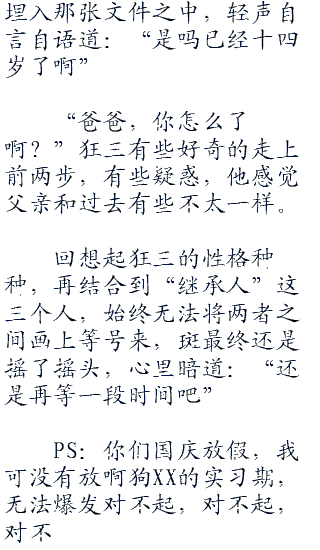 埋入那张文件之中，轻声自
言自语道：“是吗已经十四
岁了啊”
“爸爸，你怎么了
啊？”狂三有些好奇的走上
前两步，有些疑惑，他感觉
父亲和过去有些不太一样。
回想起狂三的性格种
种，再结合到“继承人”这
三个人，始终无法将两者之
间画上等号来，斑最终还是
摇了摇头，心里暗道：“还
是再等一段时间吧”
PS：你们国庆放假，我
可没有放啊狗XX的实习期，
无法爆发对不起，对不起，
对不